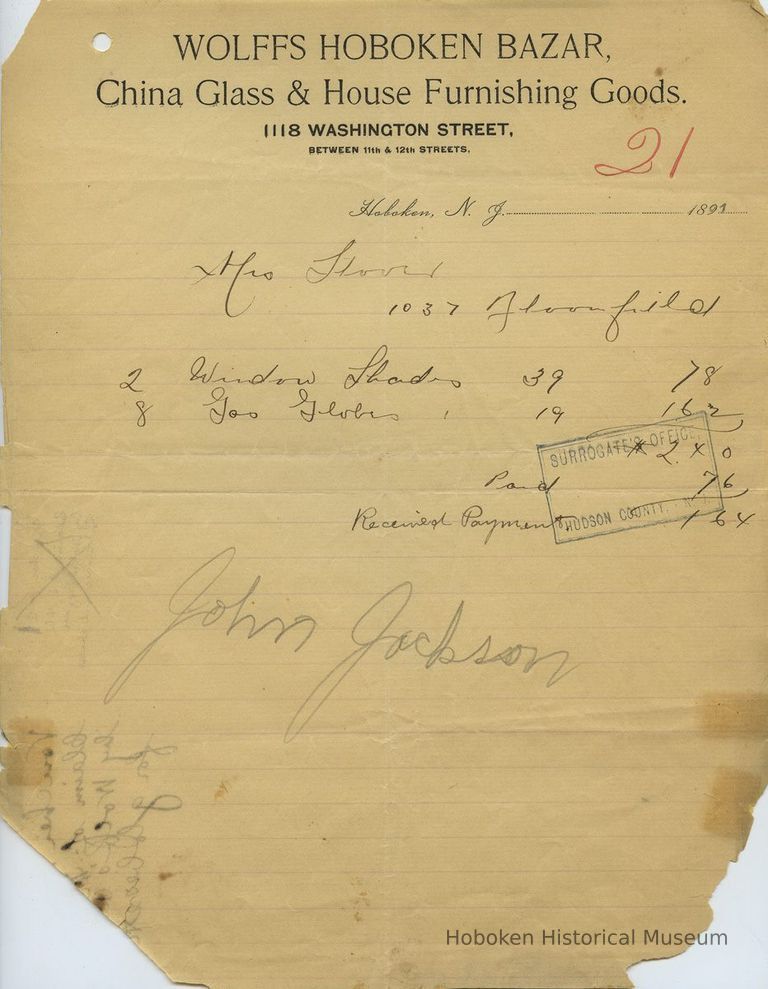 WOLFFS HOBOKEN BAZAR,
China Glass & House Furnishing Goods.
1118 WASHINGTON STREET,
BETWEEN 11th & 12th STREETS.
21
Hoboken, N. J. 1891
Mrs Stover
1037 Bloomfield
2 Window Shades 39 78
8 Gas Globes 19 162
SURROGATE'S OFFICE,
2 40
Paid 76
HUDSON COUNTY, N. J.
Received Payment 1 64
John Jackson
Hoboken Historical Museum